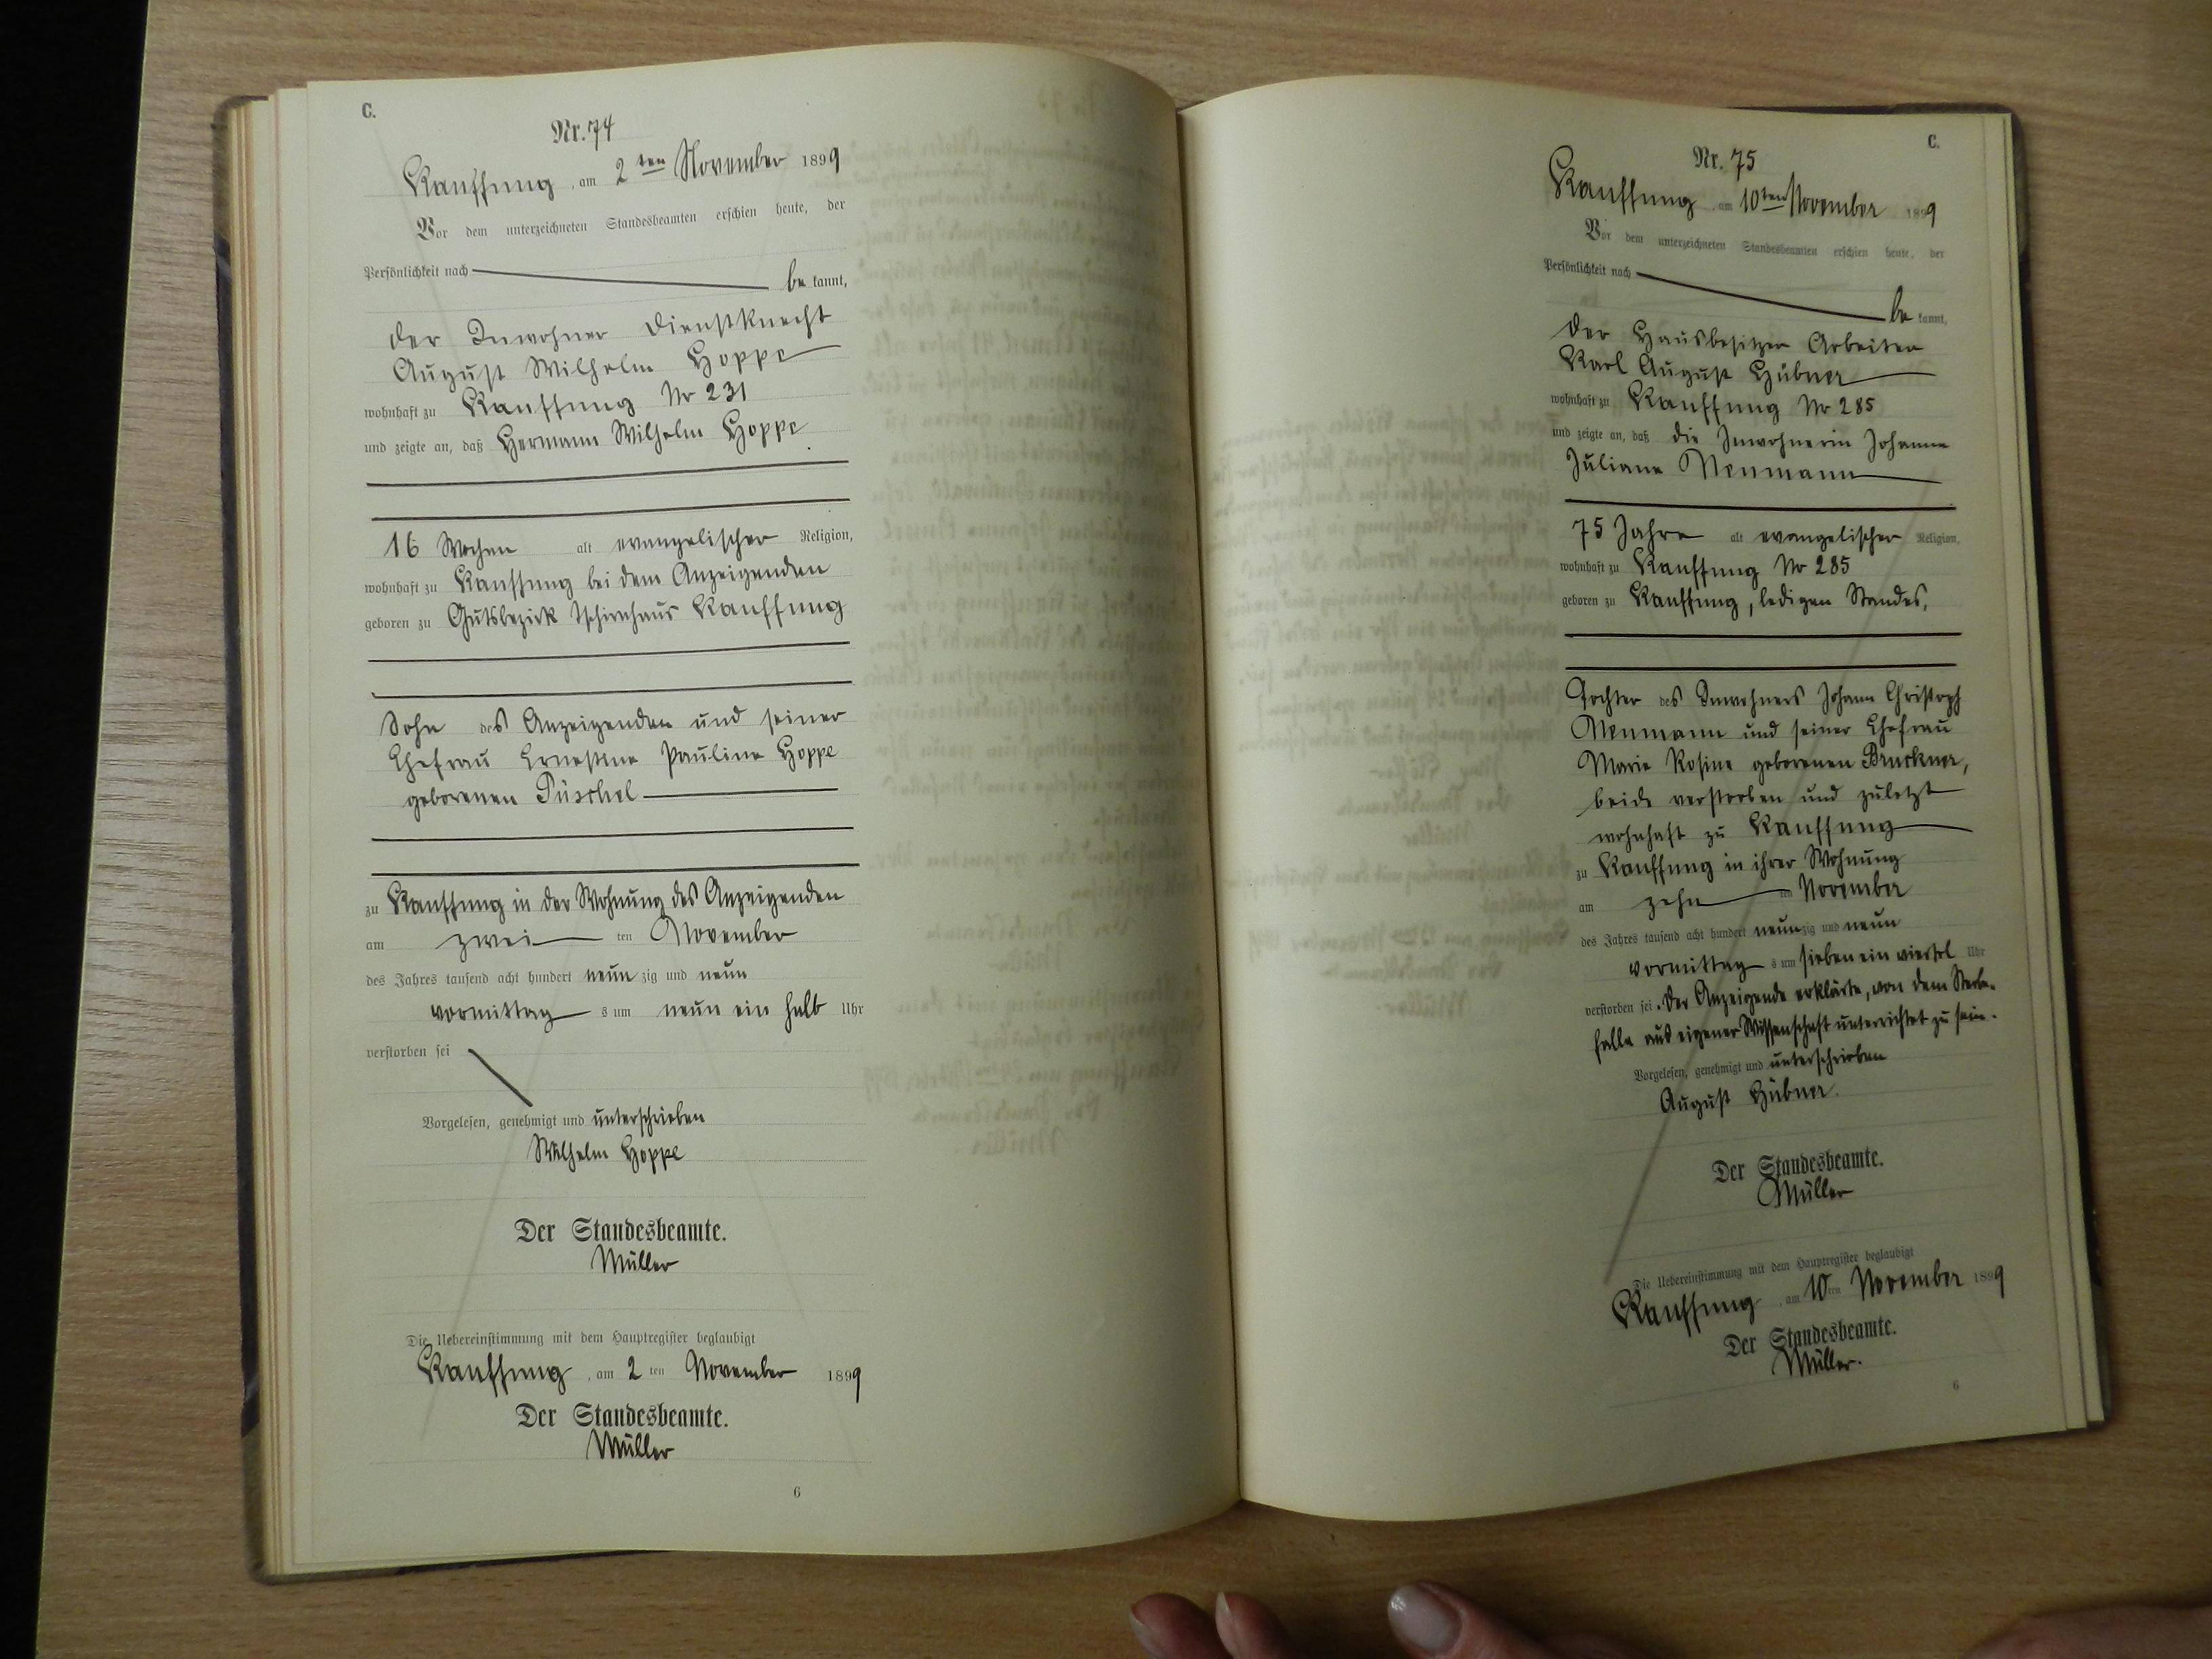 C.
Nr. 74
Kauffung, am 2ten November 1899
Vor dem unterzeichneten Standesbeamten erschien heute, der
Persönlichkeit nach
be kannt,
der Inwohner Dienstknecht
August Wilhelm Hoppe
wohnhaft zu Kauffung Nr 231
und zeigte an, daß Hermann Wilhelm Hoppe
16 Wochen alt evangelischer Religion,
wohnhaft zu Kauffung bei dem Anzeigenden
geboren zu Gutsbezirk Tschirnhaus Kauffung
Sohn des Anzeigenden und seiner
Ehefrau Ernestine Pauline Hoppe
geborenen Püschel
zu Kauffung in der Wohnung des Anzeigenden
am zwei ten November
des Jahres tausend acht hundert neun zig und neun
vormittag s um neun ein halb Uhr
verstorben sei
Vorgelesen, genehmigt und unterschrieben
Wilhelm Hoppe
Der Standesbeamte.
Müller
Die Uebereinstimmung mit dem Hauptregister beglaubigt
Kauffung, am 2 ten November 1899
Der Standesbeamte.
Müller
6
C.
Nr. 75
Kauffung, am 10ten November 1899
Vor dem unterzeichneten Standesbeamten erschien heute, der
Persönlichkeit nach
be kannt,
der Hausbesitzer Arbeiter
Karl August Hübner
wohnhaft zu Kauffung Nr 285
und zeigte an, daß die Inwohnerin Johanne
Juliane Neumann
75 Jahre alt evangelischer Religion,
wohnhaft zu Kauffung Nr 285
geboren zu Kauffung, ledigen Standes,
Tochter des Inwohners Johann Christoph
Neumann und seiner Ehefrau
Marie Rosine geborenen Bruckner,
beide verstorben und zuletzt
wohnhaft zu Kauffung
zu Kauffung in ihrer Wohnung
am zehn ten November
des Jahres tausend acht hundert neunzig und neun
vormittag s um sieben ein viertel Uhr
verstorben sei. Der Anzeigende erklärte, von dem Sterbe-
falle aus eigener Wissenschaft unterrichtet zu sein.
Vorgelesen, genehmigt und unterschrieben
August Hübner.
Der Standesbeamte.
Müller
Die Uebereinstimmung mit dem Hauptregister beglaubigt
Kauffung, am 10ten November 1899
Der Standesbeamte.
Müller.
6